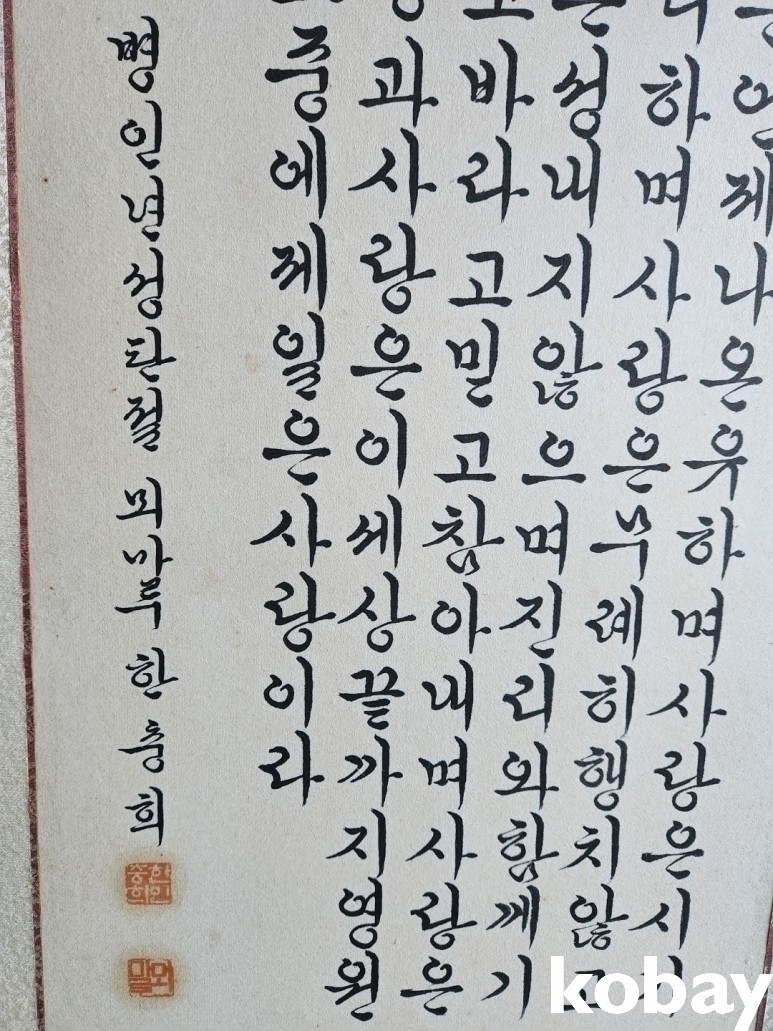 언제나온유하며사랑은시기
하며사랑은무례히행치않고
은성내지않으며진리와함께기
고바라고믿고참아내며사랑은
과사랑은이세상끝까지영원
중에제일은사랑이라
병인년성탄절 뫼마루 한충희
kobay